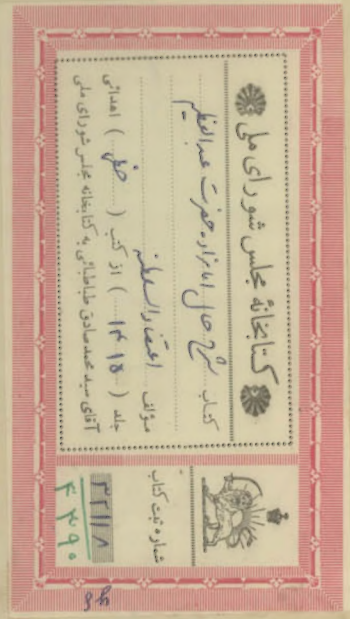 کتابخانهٔ مجلس شورای ملی
کتاب شرح حال امامزاده حضرت عبدالعظیم
مؤلف اعتماد السلطنه
جلد ( ۱۴۱۵ ) از کتب ( خطی ) اهدائی
آقای سید محمد صادق طباطبائی به کتابخانه مجلس شورای ملی
شماره ثبت کتاب
۳۲۱۱۸
۴۴۹۰